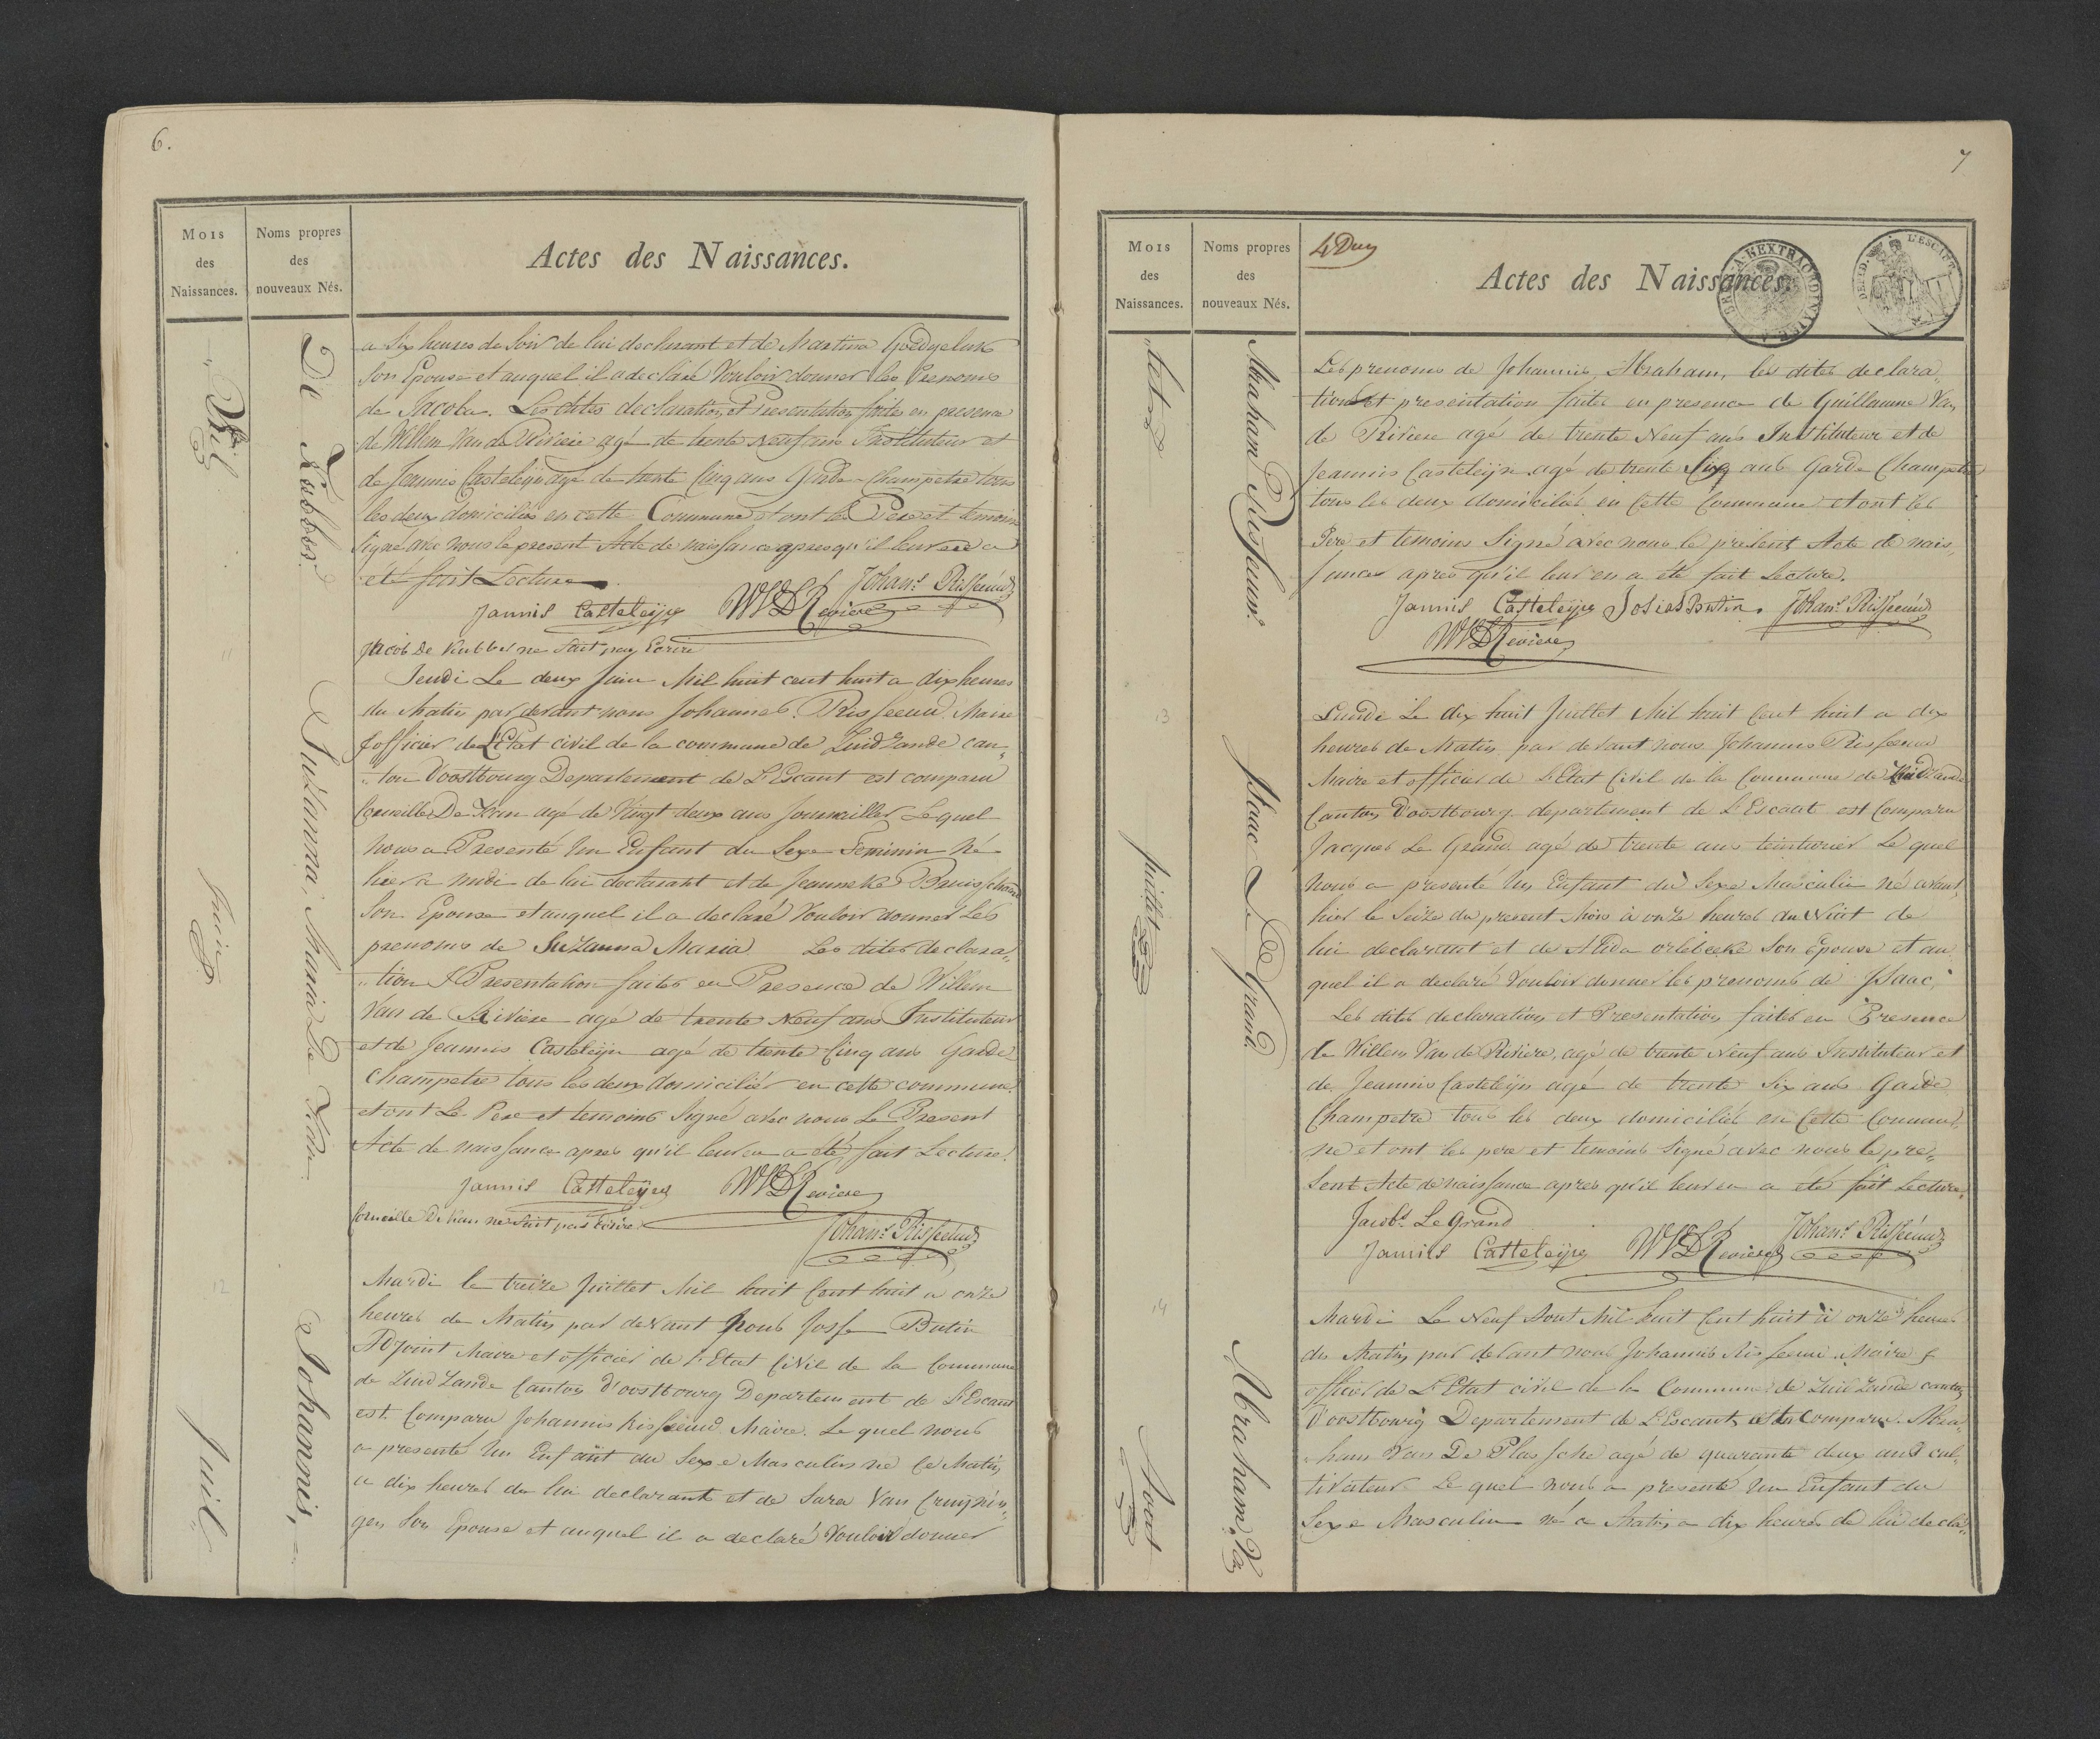 6.
Mois
des
Naissances.
Noms propres
des
nouveaux Nés.
Actes des Naissances.
De Kubber
Suzanna, Maria De
Johannis,
Juin
Juil
11
12
a Six heures de Soir de lui declarant et de Martina
Son Epouse et auquel il a declaré Vouloir donner les Prenoms
de Jacoba. Les dites declaration et Presentation faites en presence
de Willem Van de Riviere agé de trente Neuf ans Instituteur et
de Jeannis Casteleijn agé de trente Cinq ans Garde-Champetre tous
les deux domiciliés en cette Commune et ont le Pere et temoins
Signé avec nous le present Acte de naissance apres qu'il leur en a
été fait Lecture.
Johans Risseeuw
Jannis Casteleijn WVDReviere
Jacob De Kubber ne Sait pas Ecrire
Jeudi Le deux Juin Mil huit cent huit a dix heures
du Matin par devant nous Johannes Risseeuw Maire
& officier de L'Etat civil de la commune de Zuidzande can„
„ton D'oostbourg Departement de L'Escaut est comparu
Corneille De agé de Vingt deux ans Journailler Lequel
nous a Presenté Un Enfant du Sexe Feminin Né
hier a midi de lui declarant et de Janneke
Son Epouse et auquel il a declaré Vouloir donner Les
prenoms de Suzanna Maria Les dites declara„
„tion & Presentation faites en Presence de Willem
Van de Riviere agé de trente Neuf ans Instituteur
et de Jeannis Casteleijn agé de trente Cinq ans Garde
Champetre tous les deux domiciliés en cette commune
et ont Le Pere et temoins Signé avec nous Le Present
Acte de naissance apres qu'il leur en a été fait Lecture.
Jannis Casteleijn WVDReviere
Corneille De ne Sait pas Ecrire.
Johans Risseeuw
Mardi le treize Juillet Mil huit Cent huit a onze
heures de Matin par devant Nous Josse Butin
Adjoint Maire et officier de L'Etat Civil de la Commune
de Zuid Zande Canton D'oostbourg Departement de L'Escaut
est Comparu Johannis Risseeuw Maire. Le quel nous
a presenté Un Enfant du Sexe Masculin né Ce Matin
a dix heures de lui declarant et de Sara Van Cruijnin„
gen Son Epouse et auquel il a declaré Vouloir donner
7
Mois
des
Naissances.
Noms propres
des
nouveaux Nés.
Actes des Naissances.
Abraham Risseeuw.
Isaac Le Grand
Abraham, Va
„let
Juillet
Aout
13
14
Les prenoms de Johannis Abraham, les dites declara„
tion et presentation faites en presence de Guillaume Van
de Riviere agé de trente Neuf ans Instituteur et de
Jeannis Casteleijn agé de trente Six ans Garde Champetre
tous les deux domiciliés en Cette Commune et ont les
Pere et temoins Signé avec nous le present Acte de nais„
sance apres qu'il leur en a été fait Lecture.
Jannis Casteleijn Josias Butin. Johans Risseeuw
WVDReviere
Lundi Le dix huit Juillet Mil huit Cent huit a dix
heures de Matin par devant nous Johannis Risseeuw
Maire et officier de L'Etat Civil de la Commune de Zuidzande
Canton D'oostbourg departement de L'Escaut est Comparu
Jacques Le Grand agé de trente ans teinturier Le quel
Nous a presenté Un Enfant du Sexe Masculin né avant
hier le Seize du present Mois à onze heures du Nuit de
lui declarant et de Alida orlebeeke Son Epouse et au
quel il a declaré Vouloir donner les prenoms de Isaac,
Les dites declaration et Presentation faites en Presence
de Willem Van de Riviere, agé de trente Neuf ans Instituteur et
de Jeannis Casteleijn agé de trente Six ans Garde
Champetre tous les deux domiciliés en Cette Commu„
ne et ont les pere et temoins Signé avec nous le pre„
sent Acte de naissance apres qu'il leur en a été fait Lecture.
Jacobs Le Grand
Jannis Casteleijn WVDReviere Johans Risseeuw
Mardi Le Neuf Aout Mil huit Cent huit à onze heures
du Matin par devant nous Johannis Risseeuw Maire &
officier de L'Etat civil de la Commune de Zuid Zande canton
D'oostbourg Departement de L'Escaut, est Comparu. Abra„
„ham Van De Plassche agé de quarante deux ans cul„
tivateur Le quel nous a presenté Un Enfant du
Sexe Masculin né ce Matin a dix heures de lui decla„